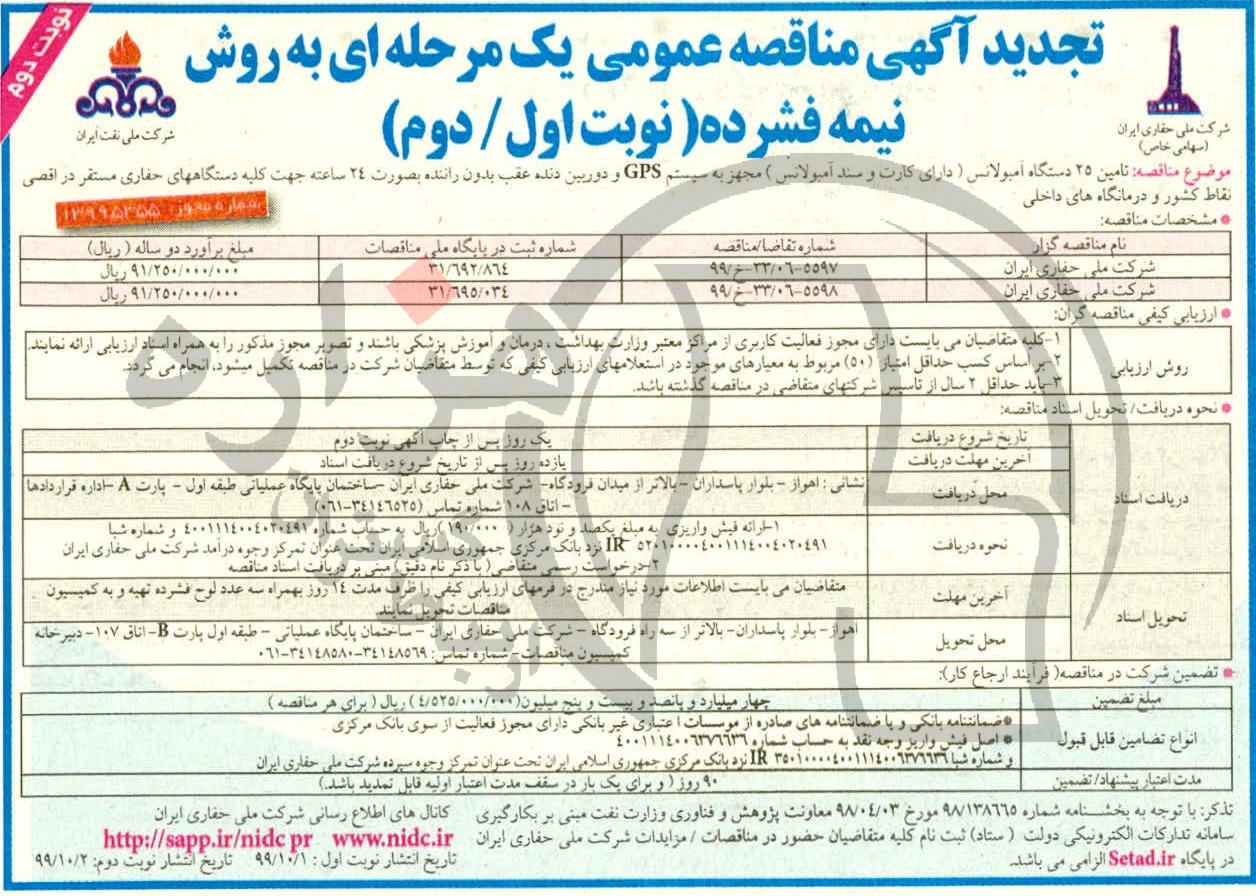 نوبت دوم
تجدید آگهی مناقصه عمومی یک مرحله ای به روش
نیمه فشرده( نوبت اول / دوم)
شرکت ملی نفت ایران
شرکت ملی حفاری ایران
(سهامی خاص)
موضوع مناقصه: تامین ۲۵ دستگاه آمبولانس ( دارای کارت و سند آمبولانس ) مجهز به سیستم GPS و دوربین دنده عقب بدون راننده بصورت ۲۴ ساعته جهت کلیه دستگاههای حفاری مستقر در اقصی
نقاط کشور و درمانگاه های داخلی
شماره مجوز: ۱۳۹۹۵۳۵۵
مشخصات مناقصه:
نام مناقصه گزار شماره تقاضا/مناقصه شماره ثبت در پایگاه ملی مناقصات مبلغ برآورد دو ساله ( ریال)
شرکت ملی حفاری ایران ۵۵۹۷-۳۳/۰۶-خ/۹۹ ۳۱/۶۹۲/۸۶۴ ۹۱/۲۵۰/۰۰۰/۰۰۰ ریال
شرکت ملی حفاری ایران ۵۵۹۸-۳۳/۰۶-خ/۹۹ ۳۱/۶۹۵/۰۳۴ ۹۱/۲۵۰/۰۰۰/۰۰۰ ریال
ارزیابی کیفی مناقصه گران:
روش ارزیابی
۱-کلیه متقاضیان می بایست دارای مجوز فعالیت کاربری از مراکز معتبر وزارت بهداشت ، درمان و آموزش پزشکی باشند و تصویر مجوز مذکور را به همراه اسناد ارزیابی ارائه نمایند.
۲-بر اساس کسب حداقل امتیاز (۵۰) مربوط به معیارهای موجود در استعلامهای ارزیابی کیفی که توسط متقاضیان شرکت در مناقصه تکمیل میشود، انجام می گردد.
۳-باید حداقل ۲ سال از تاسیس شرکتهای متقاضی در مناقصه گذشته باشد.
نحوه دریافت/ تحویل اسناد مناقصه:
دریافت اسناد
تاریخ شروع دریافت یک روز پس از چاپ آگهی نوبت دوم
آخرین مهلت دریافت یازده روز پس از تاریخ شروع دریافت اسناد
محل دریافت نشانی : اهواز - بلوار پاسداران - بالاتر از میدان فرودگاه- شرکت ملی حفاری ایران -ساختمان پایگاه عملیاتی طبقه اول - پارت A -اداره قراردادها
- اتاق ۱۰۸ شماره تماس (۳۴۱۴۶۵۲۵-۰۶۱)
نحوه دریافت ۱-ارائه فیش واریزی به مبلغ یکصد و نود هزار ( ۱۹۰/۰۰۰ )ریال به حساب شماره ۴۰۰۱۱۱۴۰۰۴۰۲۰۴۹۱ و شماره شبا
IR ۵۲۰۱۰۰۰۰۴۰۰۱۱۱۴۰۰۴۰۲۰۴۹۱ نزد بانک مرکزی جمهوری اسلامی ایران تحت عنوان تمرکز وجوه درآمد شرکت ملی حفاری ایران
۲-درخواست رسمی متقاضی( با ذکر نام دقیق) مبنی بر دریافت اسناد مناقصه
تحویل اسناد
آخرین مهلت متقاضیان می بایست اطلاعات مورد نیاز مندرج در فرمهای ارزیابی کیفی را ظرف مدت ۱۴ روز بهمراه سه عدد لوح فشرده تهیه و به کمیسیون
مناقصات تحویل نمایند.
محل تحویل اهواز- بلوار پاسداران- بالاتر از سه راه فرودگاه - شرکت ملی حفاری ایران - ساختمان پایگاه عملیاتی - طبقه اول پارت B- اتاق ۱۰۷- دبیرخانه
کمیسیون مناقصات- شماره تماس: ۳۴۱۴۸۵۶۹-۳۴۱۴۸۵۸۰-۰۶۱
تضمین شرکت در مناقصه( فرآیند ارجاع کار):
مبلغ تضمین چهار میلیارد و پانصد و بیست و پنج میلیون(۴/۵۲۵/۰۰۰/۰۰۰) ریال ( برای هر مناقصه )
انواع تضامین قابل قبول
ضمانتنامه بانکی و یا ضمانتنامه های صادره از موسسات اعتباری غیر بانکی دارای مجوز فعالیت از سوی بانک مرکزی
اصل فیش واریز وجه نقد به حساب شماره ۴۰۰۱۱۱۴۰۰۶۳۷۶۶۳۶
و شماره شبا IR ۳۵۰۱۰۰۰۰۴۰۰۱۱۱۴۰۰۶۳۷۶۶۳۶ نزد بانک مرکزی جمهوری اسلامی ایران تحت عنوان تمرکز وجوه سپرده شرکت ملی حفاری ایران
مدت اعتبار پیشنهاد/ تضمین ۹۰ روز ( و برای یک بار در سقف مدت اعتبار اولیه قابل تمدید باشد.)
تذکر: با توجه به بخشنامه شماره ۹۸/۱۳۸۶۶۵ مورخ ۹۸/۰۴/۰۳ معاونت پژوهش و فناوری وزارت نفت مبنی بر بکارگیری
سامانه تدارکات الکترونیکی دولت ( ستاد) ثبت نام کلیه متقاضیان حضور در مناقصات / مزایدات شرکت ملی حفاری ایران
در پایگاه Setad.ir الزامی می باشد.
کانال های اطلاع رسانی شرکت ملی حفاری ایران
http://sapp.ir/nidc pr www.nidc.ir
تاریخ انتشار نوبت اول : ۹۹/۱۰/۱ تاریخ انتشار نوبت دوم: ۹۹/۱۰/۲
هزاره